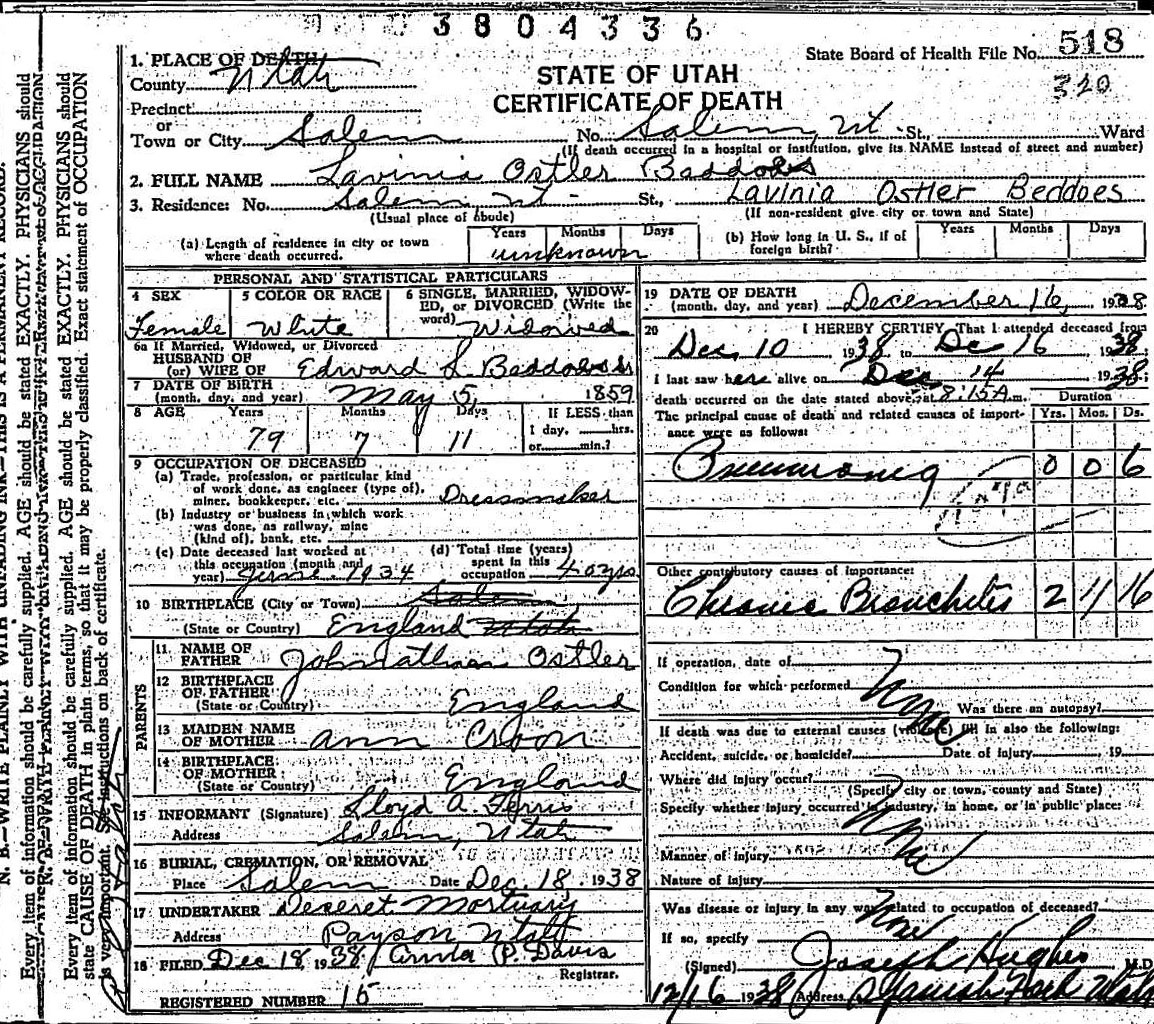 3804336
State Board of Health File No. 518
320
1. PLACE OF DEATH
County Utah
STATE OF UTAH
CERTIFICATE OF DEATH
Precinct
or
Town or City Salem No. Salem, Ut. St., Ward
(If death occurred in a hospital or institution, give its NAME instead of street and number)
2. FULL NAME Lavinia Ostler Beddoes
3. Residence: No. Salem, Ut - St., Lavinia Ostler Beddoes
(Usual place of abode) (If non-resident give city or town and State)
(a) Length of residence in city or town where death occurred. Years Months Days
unknown
(b) How long in U. S., if of foreign birth? Years Months Days
PERSONAL AND STATISTICAL PARTICULARS
4 SEX 5 COLOR OR RACE 6 SINGLE, MARRIED, WIDOW-
ED, or DIVORCED (Write the
word)
Female White Widowed
6a If Married, Widowed, or Divorced
HUSBAND OF
(or) WIFE OF Edward L Beddoes Sr
7 DATE OF BIRTH
(month, day, and year) May 5, 1859
8 AGE Years Months Days If LESS than
1 day, hrs.
or min.?
79 7 11
9 OCCUPATION OF DECEASED
(a) Trade, profession, or particular kind
of work done, as engineer (type of),
miner, bookkeeper, etc. Dressmaker
(b) Industry or business in which work
was done, as railway, mine
(kind of), bank, etc.
(c) Date deceased last worked at
this occupation (month and
year) June 1934
(d) Total time (years)
spent in this
occupation 40 yrs
10 BIRTHPLACE (City or Town) Salem
(State or Country) England Utah
PARENTS
11. NAME OF
FATHER Johnathan Ostler
12 BIRTHPLACE
OF FATHER
(State or Country) England
13 MAIDEN NAME
OF MOTHER Ann Croon
14 BIRTHPLACE
OF MOTHER
(State or Country) England
15 INFORMANT (Signature) Lloyd A. Ferris
Address Salem, Utah
16 BURIAL, CREMATION, OR REMOVAL
Place Salem Date Dec 18, 1938
17 UNDERTAKER Deseret Mortuary
Address Payson Utah
18 FILED Dec 18, 1938 Anna P. Davis
Registrar.
REGISTERED NUMBER 15
19 DATE OF DEATH
(month, day, and year) December 16, 1938
20 I HEREBY CERTIFY, That I attended deceased from
Dec, 10, 1938 to Dec 16 1938
I last saw her alive on Dec 14 1938;
death occurred on the date stated above, at 8:15 A.m.
Duration
The principal cause of death and related causes of import-
ance were as follows: Yrs. Mos. Ds.
Pneumonia 0 0 6
Other contributory causes of importance:
Chronic Bronchitis 2 11 16
If operation, date of
Condition for which performed None
Was there an autopsy?
If death was due to external causes (violence) fill in also the following:
Accident, suicide, or homicide? Date of injury , 19
Where did injury occur?
(Specify city or town, county and State)
Specify whether injury occurred in industry, in home, or in public place:
None
Manner of injury
Nature of injury
Was disease or injury in any way related to occupation of deceased?
None
If so, specify
(Signed) Joseph Hughes M.D.
12/16 1938 Address Spanish Fork Utah
N. B.—WRITE PLAINLY WITH UNFADING INK—THIS IS A PERMANENT RECORD.
Every item of information should be carefully supplied. AGE should be stated EXACTLY. PHYSICIANS should
Every item of information should be carefully supplied. AGE should be stated EXACTLY. PHYSICIANS should
state CAUSE OF DEATH in plain terms, so that it may be properly classified. Exact statement of OCCUPATION
is very important. See instructions on back of certificate.